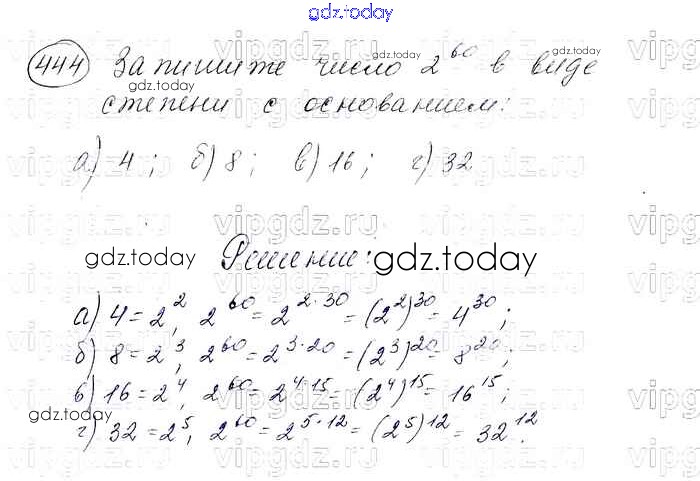 gdz.today
444 Запишите число 2^60 в виде
степени с основанием:
а) 4; б) 8; в) 16; г) 32
Решение:
а) 4 = 2^2, 2^60 = 2^2·30 = (2^2)^30 = 4^30;
б) 8 = 2^3, 2^60 = 2^3·20 = (2^3)^20 = 8^20;
в) 16 = 2^4, 2^60 = 2^4·15 = (2^4)^15 = 16^15;
г) 32 = 2^5, 2^60 = 2^5·12 = (2^5)^12 = 32^12.
gdz.today
gdz.today
gdz.today
gdz.today
gdz.today
gdz.today
gdz.today
vipgdz.ru
vipgdz.ru
vipgdz.ru